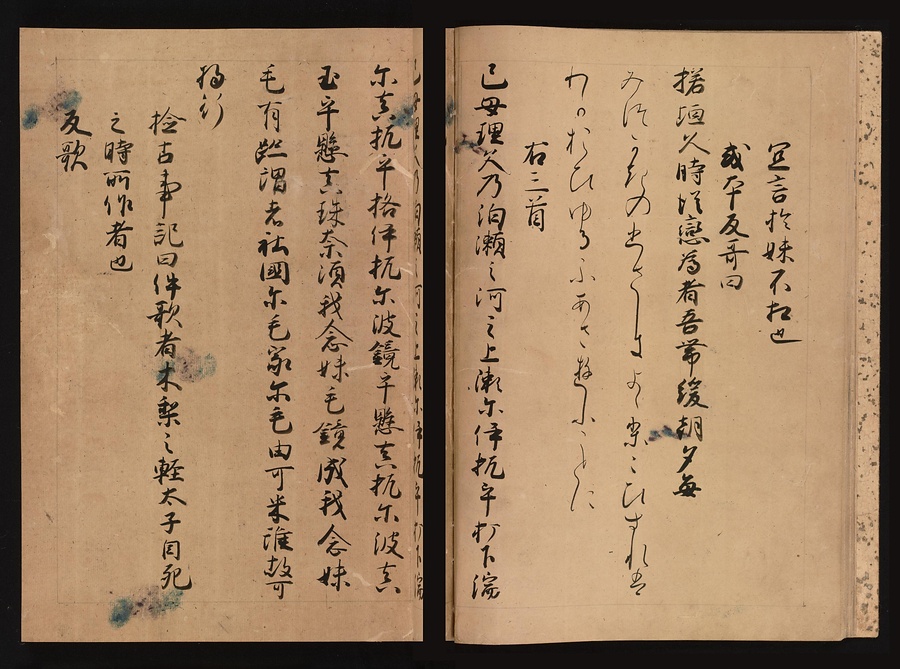 宜言於妹不相也
或本反哥曰
楉垣久時従戀為者吾帯緩朝夕毎
みつかきのひさしきよゝりこひすれは
わかおひゆるふあさゆふことに
右三首
己母理久乃泊瀬之河之上瀬尓伊杭乎打下湍
尓真杭乎格伊杭尓波鏡乎懸真杭尓波真
玉乎懸真珠奈須我念妹毛鏡成我念妹
毛有跡謂者社國尓毛家尓毛由可米誰故可
将行
捡古事記曰件歌者木梨之軽太子自死
之時所作者也
反歌